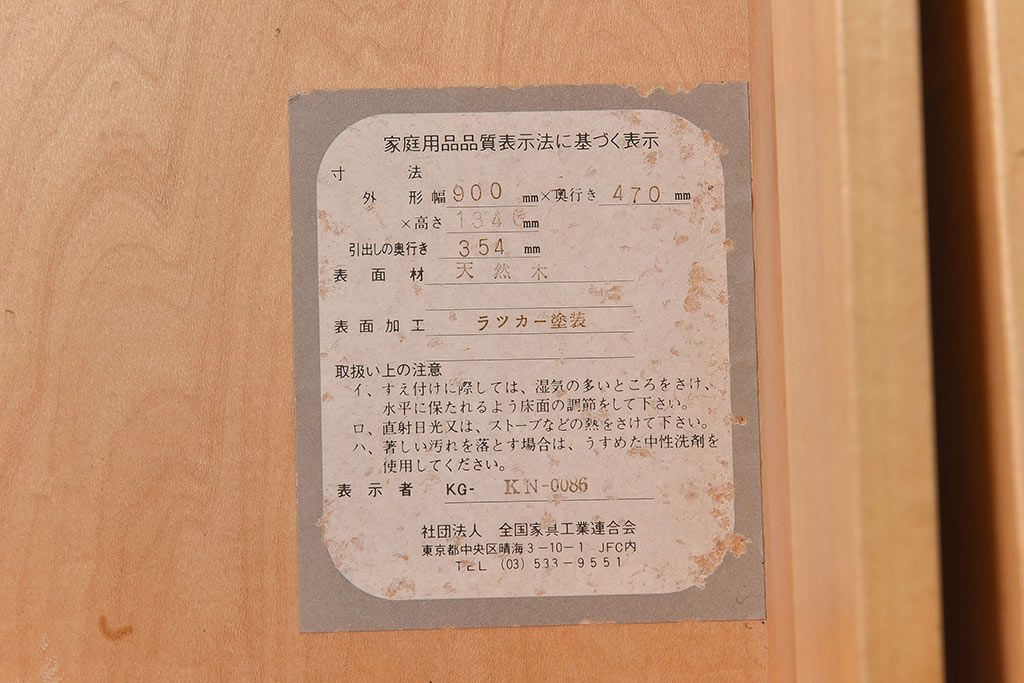 家庭用品品質表示法に基づく表示
寸法
外形幅 900 mm×奥行き 470 mm
×高さ 1340 mm
引出しの奥行き 354 mm
表面材 天然木
表面加工 ラツカー塗装
取扱い上の注意
イ、すえ付けに際しては、湿気の多いところをさけ、
水平に保たれるよう床面の調節をして下さい。
ロ、直射日光又は、ストーブなどの熱をさけて下さい。
ハ、著しい汚れを落とす場合は、うすめた中性洗剤を
使用してください。
表示者 KG- KN-0086
社団法人 全国家具工業連合会
東京都中央区晴海3-10-1 JFC内
TEL (03) 533-9551